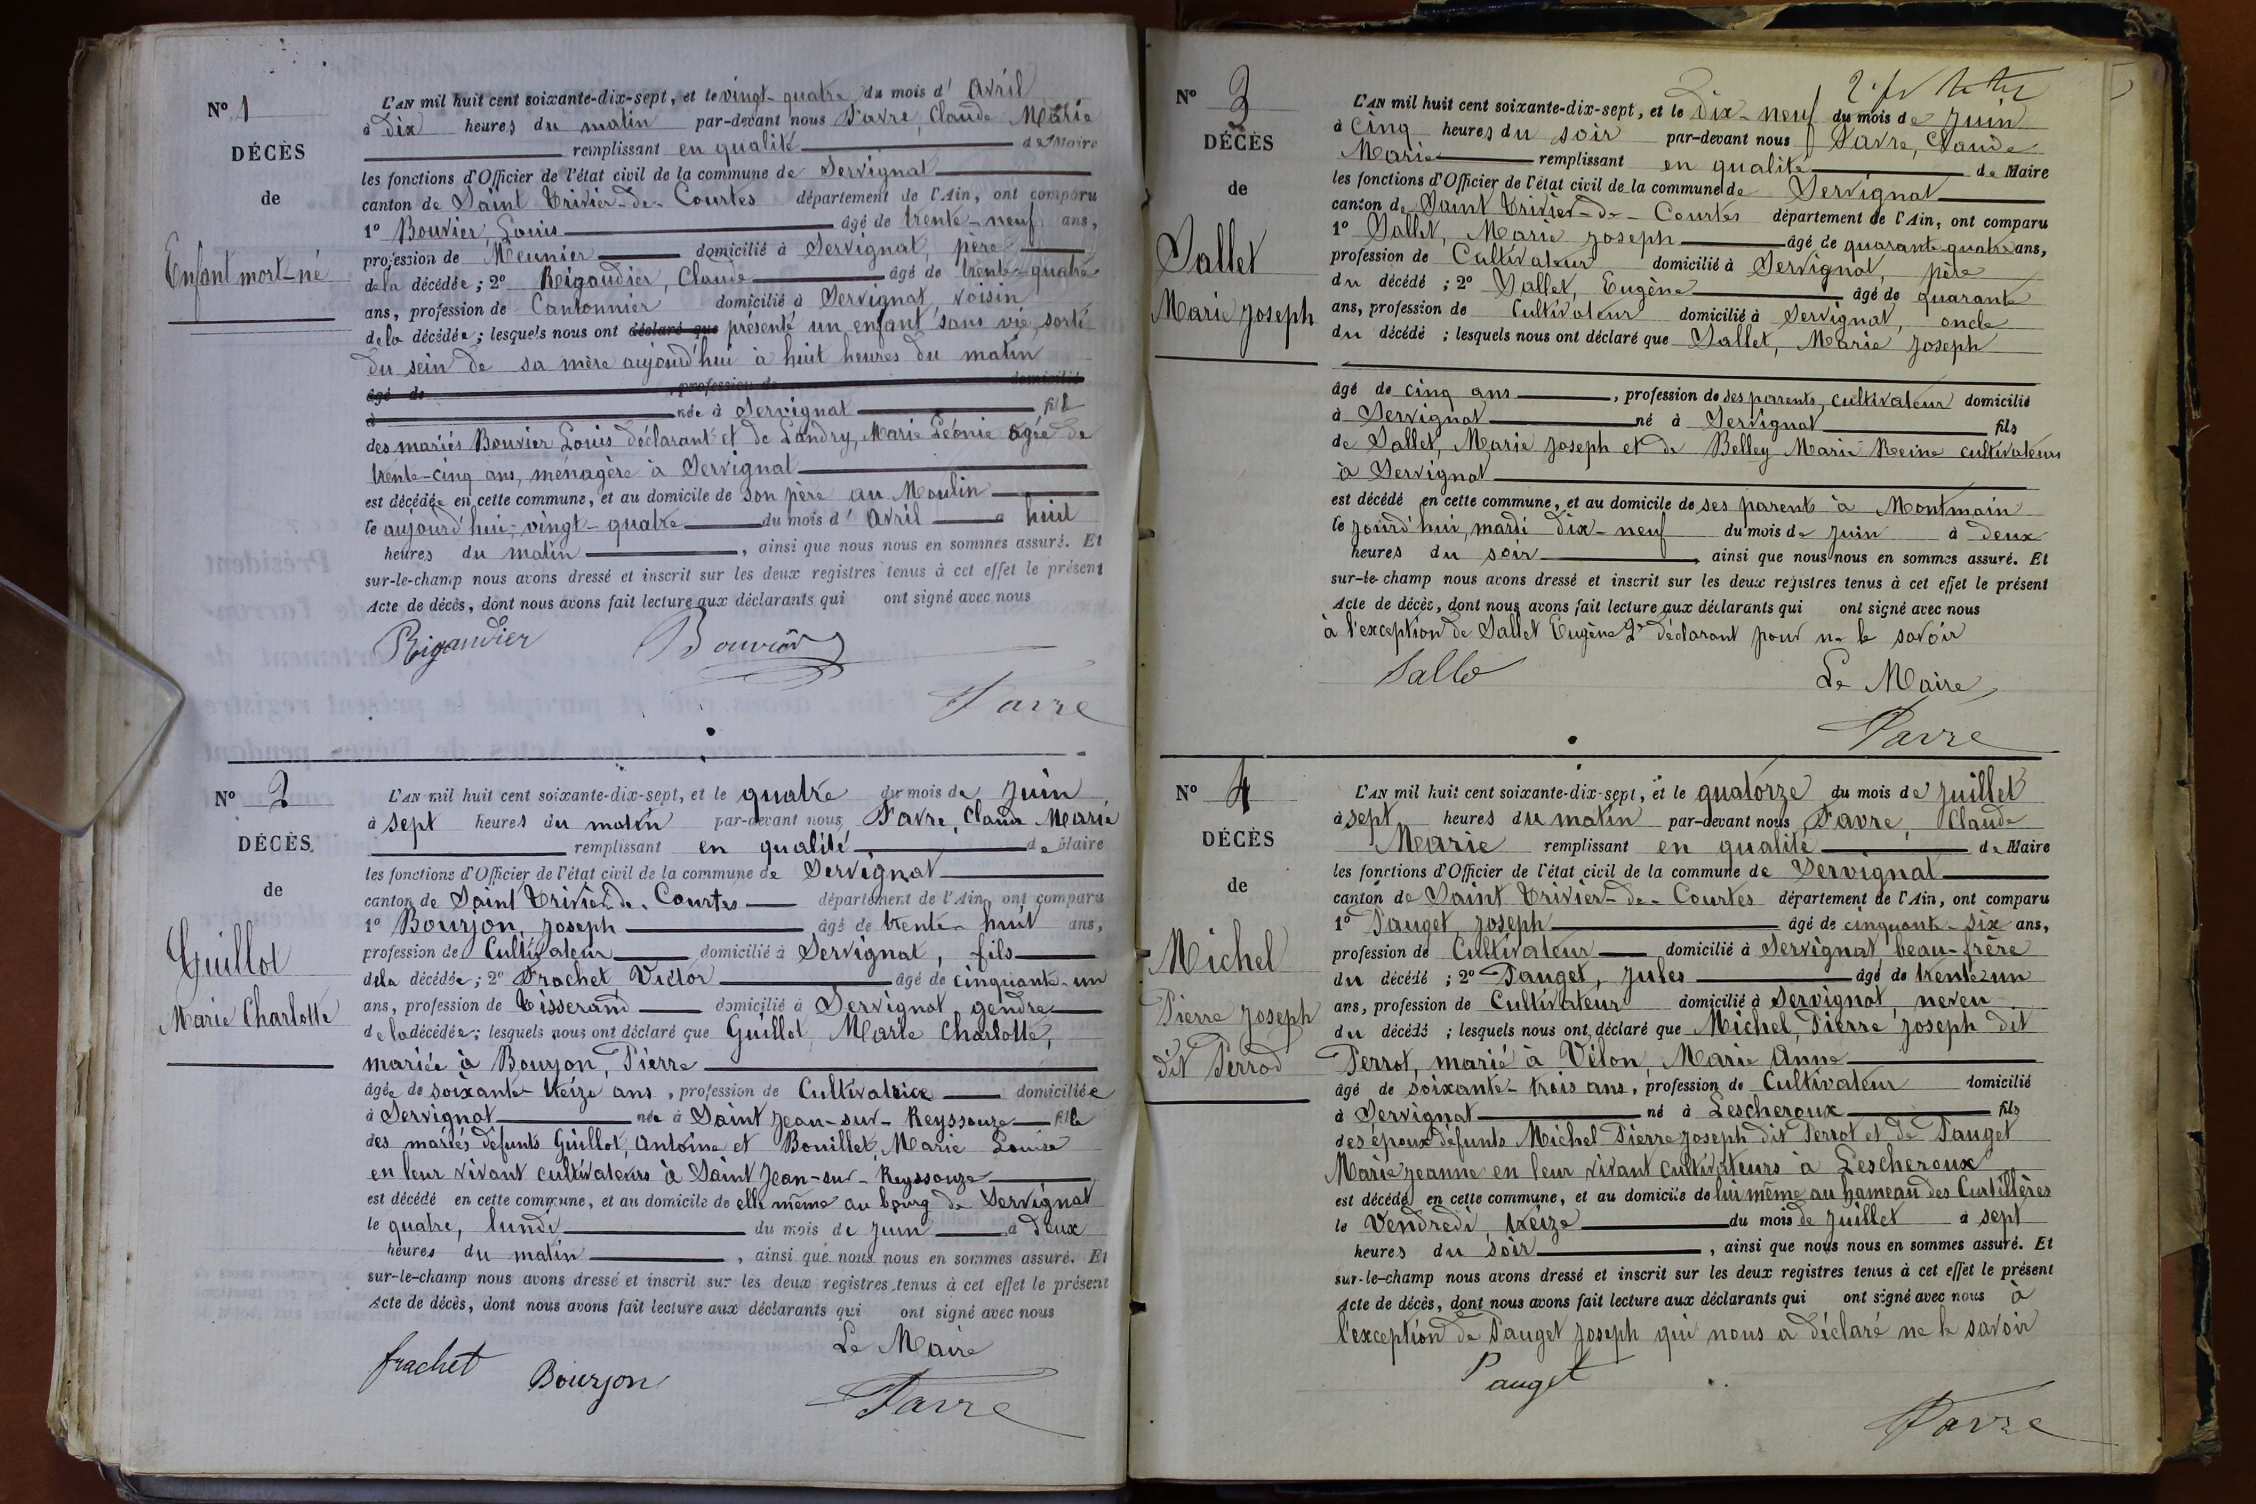 N° 1
DÉCÈS
de
Enfant mort-né
L'AN mil huit cent soixante-dix-sept, et le vingt-quatre du mois d' Avril
à Dix heures du matin par-devant nous Favre, Claude Marie
remplissant en qualité de Maire
les fonctions d'Officier de l'état civil de la commune de Servignat
canton de Saint Trivier-de-Courtes département de l'Ain, ont comparu
1° Bouvier, Louis âgé de trente-neuf ans,
profession de Meunier domicilié à Servignat, père
de la décédée ; 2° Rigaudier, Claude âgé de trente-quatre
ans, profession de Cantonnier domicilié à Servignat, voisin
de la décédée ; lesquels nous ont déclaré que présenté un enfant sans vie, sorti
du sein de sa mère aujourd'hui à huit heures du matin
âgé de , profession de domicilié
à née à Servignat fille
des mariés Bouvier Louis déclarant et de Landry, Marie Léonie âgée de
trente-cinq ans, ménagère à Servignat
est décédée en cette commune, et au domicile de son père au Moulin
le aujourd'hui, vingt-quatre du mois d' Avril à huit
heures du matin , ainsi que nous nous en sommes assuré. Et
sur-le-champ nous avons dressé et inscrit sur les deux registres tenus à cet effet le présent
Acte de décès, dont nous avons fait lecture aux déclarants qui ont signé avec nous
Rigaudier Bouvier
Favre
N° 2
DÉCÈS
de
Guillot
Marie Charlotte
L'AN mil huit cent soixante-dix-sept, et le quatre du mois de Juin
à sept heures du matin par-devant nous Favre, Claude Marie
remplissant en qualité de Maire
les fonctions d'Officier de l'état civil de la commune de Servignat
canton de Saint Trivier-de-Courtes département de l'Ain, ont comparu
1° Bourjon, Joseph âgé de trente-huit ans,
profession de Cultivateur domicilié à Servignat, fils
de la décédée ; 2° Frachet, Victor âgé de cinquante-un
ans, profession de Tisserand domicilié à Servignat gendre
de la décédée ; lesquels nous ont déclaré que Guillot, Marie Charlotte,
mariée à Bourjon, Pierre
âgée de soixante-treize ans, profession de Cultivatrice domiciliée
à Servignat née à Saint Jean-sur-Reyssouze fille
des mariés défunts Guillot, Antoine et Bouillet, Marie Louise
en leur vivant cultivateurs à Saint Jean-sur-Reyssouze
est décédé en cette commune, et au domicile de elle même au bourg de Servignat
le quatre, lundi du mois de Juin à deux
heures du matin , ainsi que nous nous en sommes assuré. Et
sur-le-champ nous avons dressé et inscrit sur les deux registres tenus à cet effet le présent
Acte de décès, dont nous avons fait lecture aux déclarants qui ont signé avec nous
Le Maire
frachet Bourjon
Favre
N° 3
DÉCÈS
de
Sallet
Marie Joseph
L'AN mil huit cent soixante-dix-sept, et le Dix-neuf du mois de Juin
à Cinq heures du soir par-devant nous Favre, Claude
Marie remplissant en qualité de Maire
les fonctions d'Officier de l'état civil de la commune de Servignat
canton de Saint Trivier-de-Courtes département de l'Ain, ont comparu
1° Sallet, Marie Joseph âgé de quarante-quatre ans,
profession de Cultivateur domicilié à Servignat, père
du décédé ; 2° Sallet, Eugène âgé de quarante
ans, profession de Cultivateur domicilié à Servignat, oncle
du décédé ; lesquels nous ont déclaré que Sallet, Marie Joseph
âgé de cinq ans , profession de ses parents, cultivateur domicilié
à Servignat né à Servignat fils
de Sallet, Marie Joseph et de Belley Marie Reine cultivateurs
à Servignat
est décédé en cette commune, et au domicile de ses parents à Montmain
le jourd'hui, mardi dix-neuf du mois de Juin à deux
heures du soir , ainsi que nous nous en sommes assuré. Et
sur-le-champ nous avons dressé et inscrit sur les deux registres tenus à cet effet le présent
Acte de décès, dont nous avons fait lecture aux déclarants qui ont signé avec nous
à l'exception de Sallet Eugène 2e déclarant pour ne le savoir
Sallet Le Maire
Favre
N° 4
DÉCÈS
de
Michel
Pierre Joseph
dit Perrod
L'AN mil huit cent soixante-dix-sept, et le quatorze du mois de Juillet
à sept heures du matin par-devant nous Favre, Claude
Marie remplissant en qualité de Maire
les fonctions d'Officier de l'état civil de la commune de Servignat
canton de Saint Trivier-de-Courtes département de l'Ain, ont comparu
1° Pauget, Joseph âgé de cinquante-six ans,
profession de Cultivateur domicilié à Servignat, beau-frère
du décédé ; 2° Pauget, Jules âgé de trente-un
ans, profession de Cultivateur domicilié à Servignat, neveu
du décédé ; lesquels nous ont déclaré que Michel, Pierre Joseph dit
Perrot, marié à Vélon, Marie Anne
âgé de soixante-trois ans, profession de Cultivateur domicilié
à Servignat né à Lescheroux fils
des époux défunts Michel Pierre Joseph dit Perrot et de Pauget
Marie Jeanne en leur vivant cultivateurs à Lescheroux
est décédé en cette commune, et au domicile de lui même au hameau des Curtillères
le Vendredi, treize du mois de Juillet à sept
heures du soir , ainsi que nous nous en sommes assuré. Et
sur-le-champ nous avons dressé et inscrit sur les deux registres tenus à cet effet le présent
Acte de décès, dont nous avons fait lecture aux déclarants qui ont signé avec nous à
l'exception de Pauget Joseph qui nous a déclaré ne le savoir
Pauget
Favre